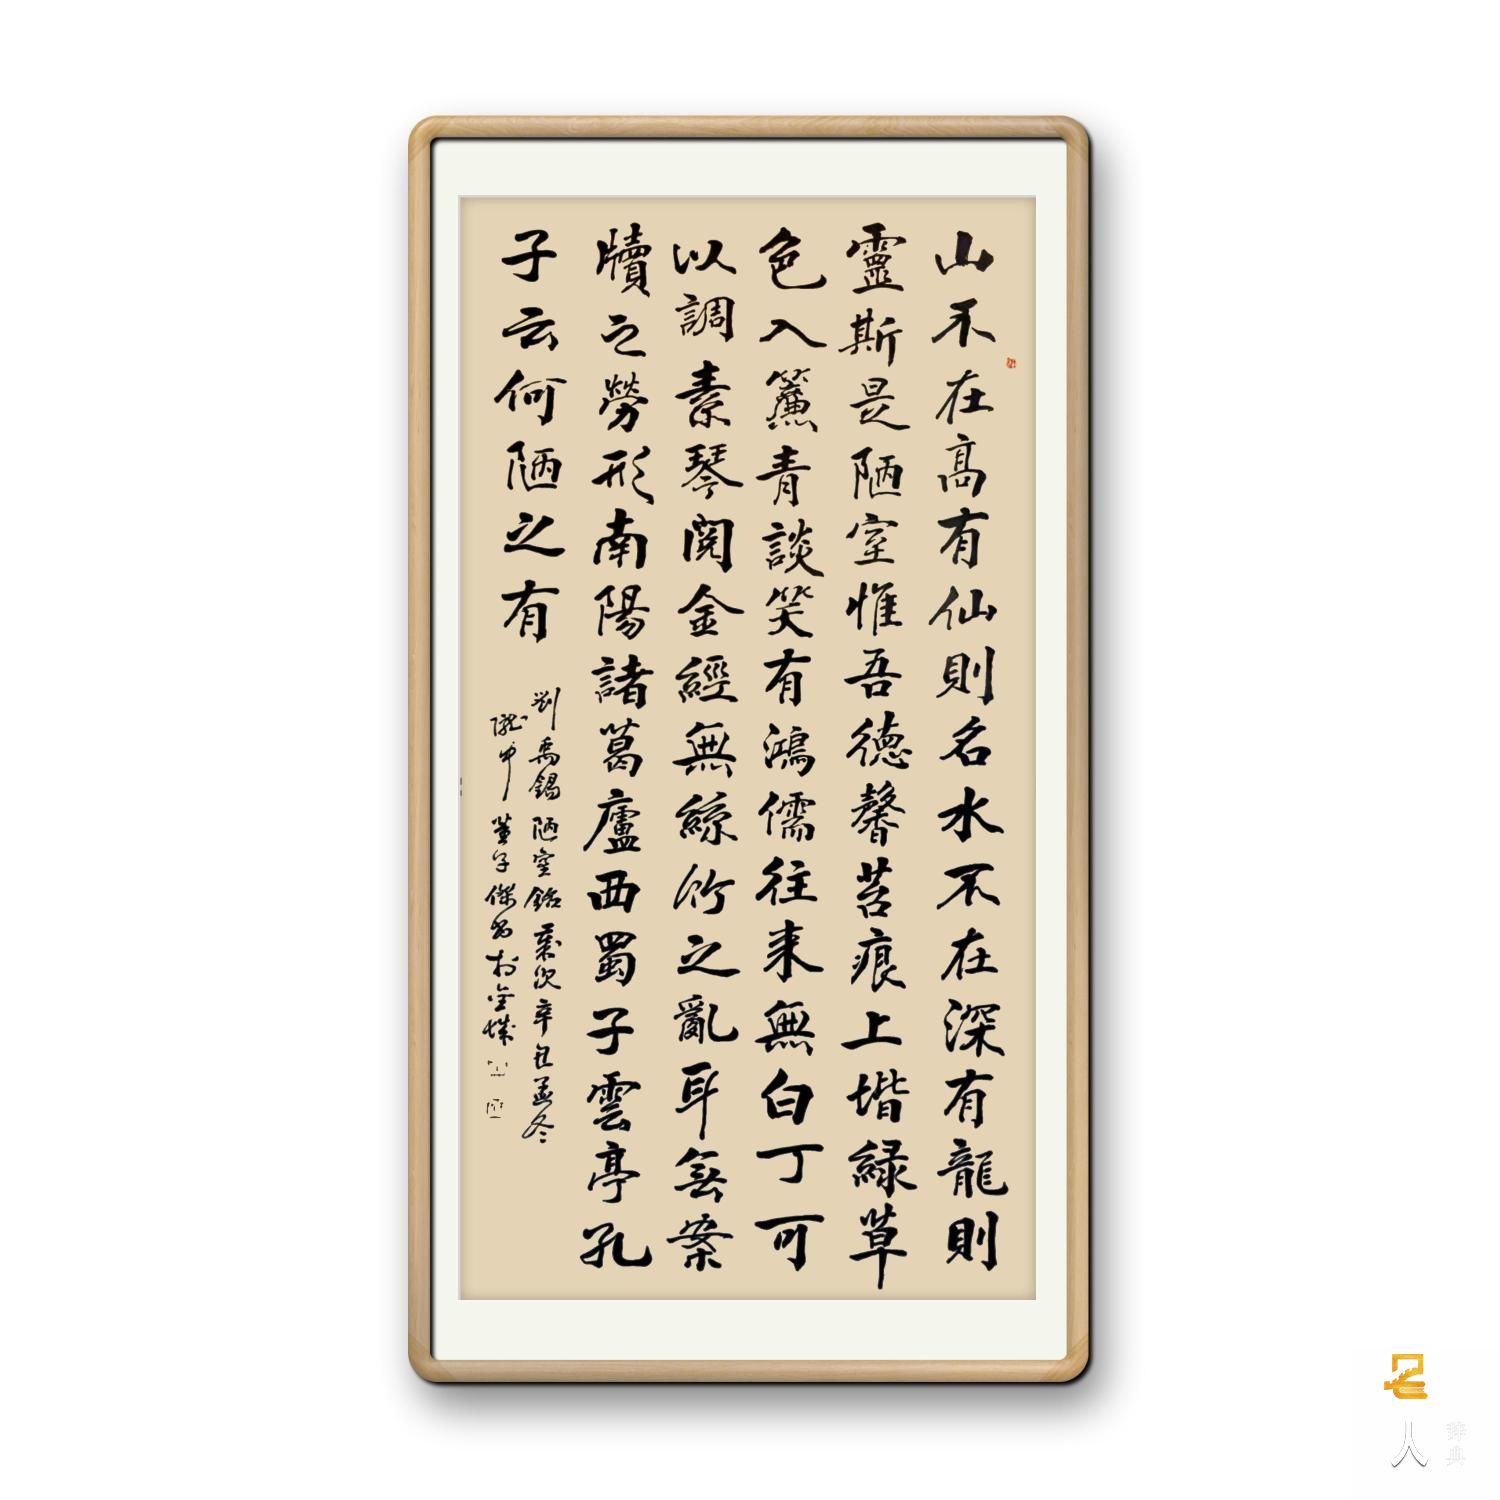 山不在髙有仙則名水不在深有龍則
靈斯是陋室惟吾德馨苔痕上堦緑草
色入簾青談笑有鴻儒往来無白丁可
以調素琴閱金經無絲竹之亂耳無案
牘之勞形南陽諸葛廬西蜀子雲亭孔
子云何陋之有
劉禹錫陋室銘歲次辛丑孟冬
隴中董子傑書於金城
人
辞典